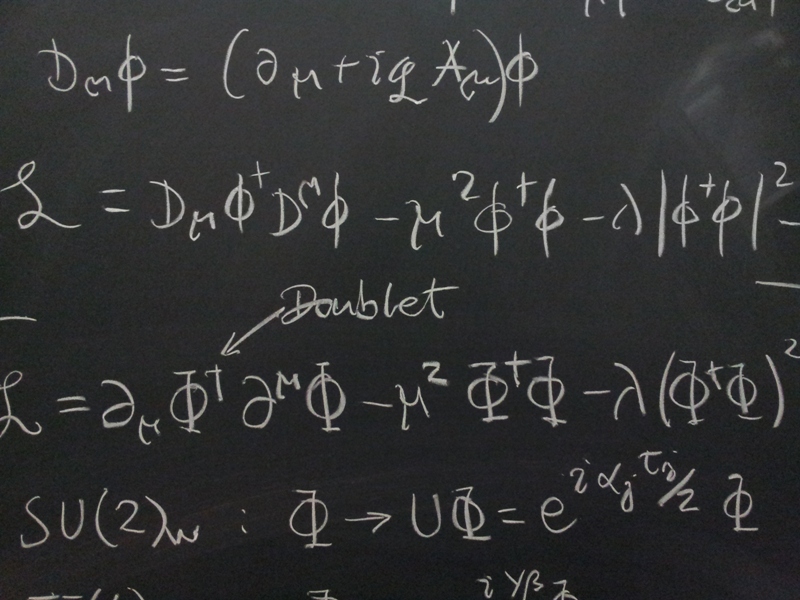 Dμϕ = (∂μ + ig Aμ)ϕ
ℒ = Dμϕ†D^μϕ - μ²ϕ†ϕ - λ|ϕ†ϕ|² -
Doublet
ℒ = ∂μΦ†∂^μΦ - μ²Φ†Φ - λ(Φ†Φ)²
SU(2)w : Φ → UΦ = e^{iαjτj/2} Φ